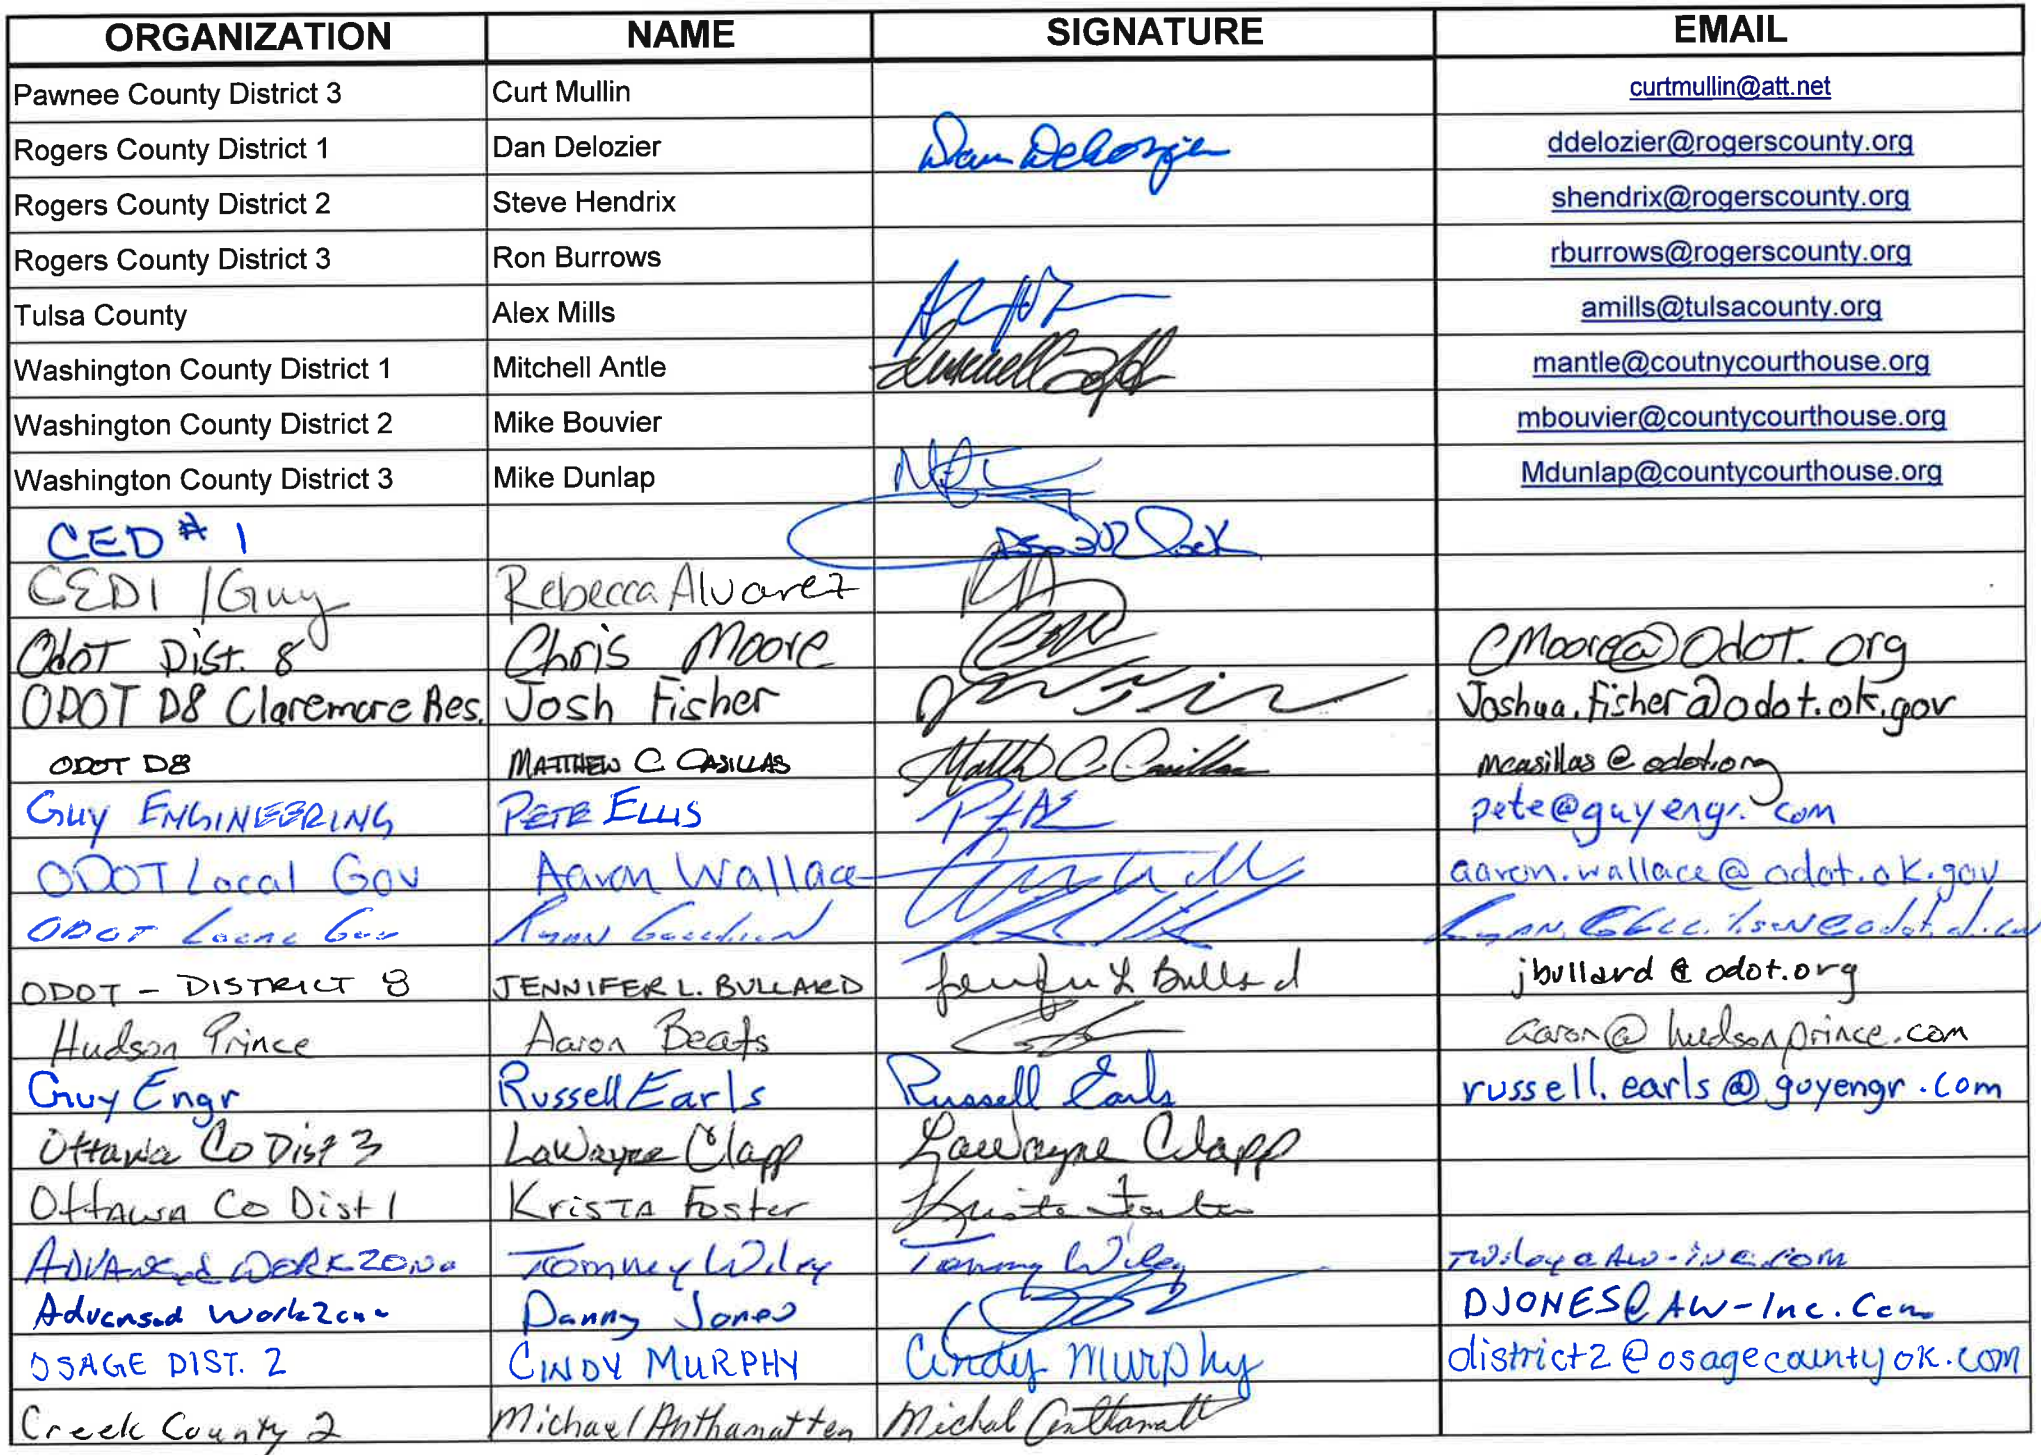 ORGANIZATION NAME SIGNATURE EMAIL
Pawnee County District 3 Curt Mullin curtmullin@att.net
Rogers County District 1 Dan Delozier Dan Delozier ddelozier@rogerscounty.org
Rogers County District 2 Steve Hendrix shendrix@rogerscounty.org
Rogers County District 3 Ron Burrows rburrows@rogerscounty.org
Tulsa County Alex Mills amills@tulsacounty.org
Washington County District 1 Mitchell Antle mantle@coutnycourthouse.org
Washington County District 2 Mike Bouvier mbouvier@countycourthouse.org
Washington County District 3 Mike Dunlap Mdunlap@countycourthouse.org
CED # 1
CED1 / Guy Rebecca Alvarez
OdoT Dist. 8 Chris Moore CMoore@OdoT.org
ODOT D8 Claremore Res. Josh Fisher Joshua.Fisher@odot.ok.gov
ODOT D8 MATTHEW C CASILLAS Matth C. Casillas mcasillas@odot.org
GUY ENGINEERING PETE ELLIS pete@guyengr.com
ODOT Local Gov Aaron Wallace aaron.wallace@odot.ok.gov
ODOT Local Gov Ryan
ODOT - DISTRICT 8 JENNIFER L. BULLARD Jennifer L Bullard jbullard@odot.org
Hudson Prince Aaron Beats aaron@hudsonprince.com
Guy Engr Russell Earls Russell Earls russell.earls@guyengr.com
Ottawa Co Dist 3 LaWayne Clapp LaWayne Clapp
Ottawa Co Dist 1 Krista Foster Krista Foster
ADVANCED WORKZONE Tommy Wiley Tommy Wiley TWiley@AW-INC.COM
Advanced WorkZone Danny Jones DJONES@AW-Inc.Com
OSAGE DIST. 2 CINDY MURPHY Cindy Murphy district2@osagecountyok.com
Creek County 2 Michael Anthamatten Michal Anthamatt